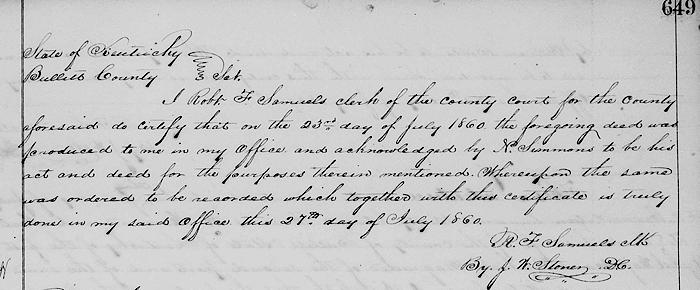 649
State of Kentucky
Bullitt County Sct.
I Robt. F Samuels clerk of the county court for the County
aforesaid do certify that on the 23rd day of July 1860 the foregoing deed was
produced to me in my office and acknowledged by N. Simmons to be his
act and deed for the purposes therein mentioned. Whereupon the same
was ordered to be recorded which together with this certificate is truly
done in my said office this 27th day of July 1860.
R. F. Samuels Clk
By. J. W. Stoner D.C.